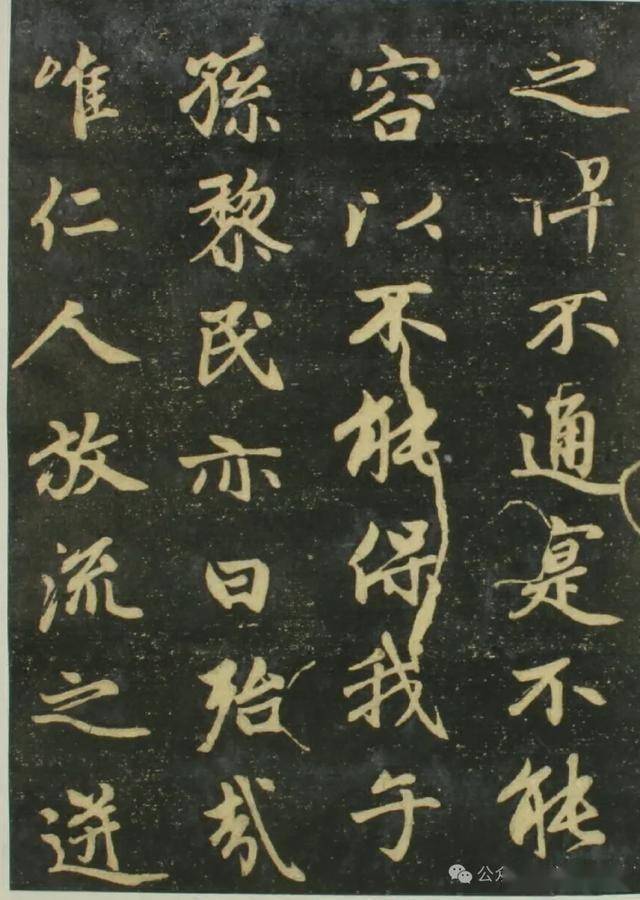 之俾不通寔不能
容以不能保我子
孫黎民亦曰殆哉
唯仁人放流之迸
公众